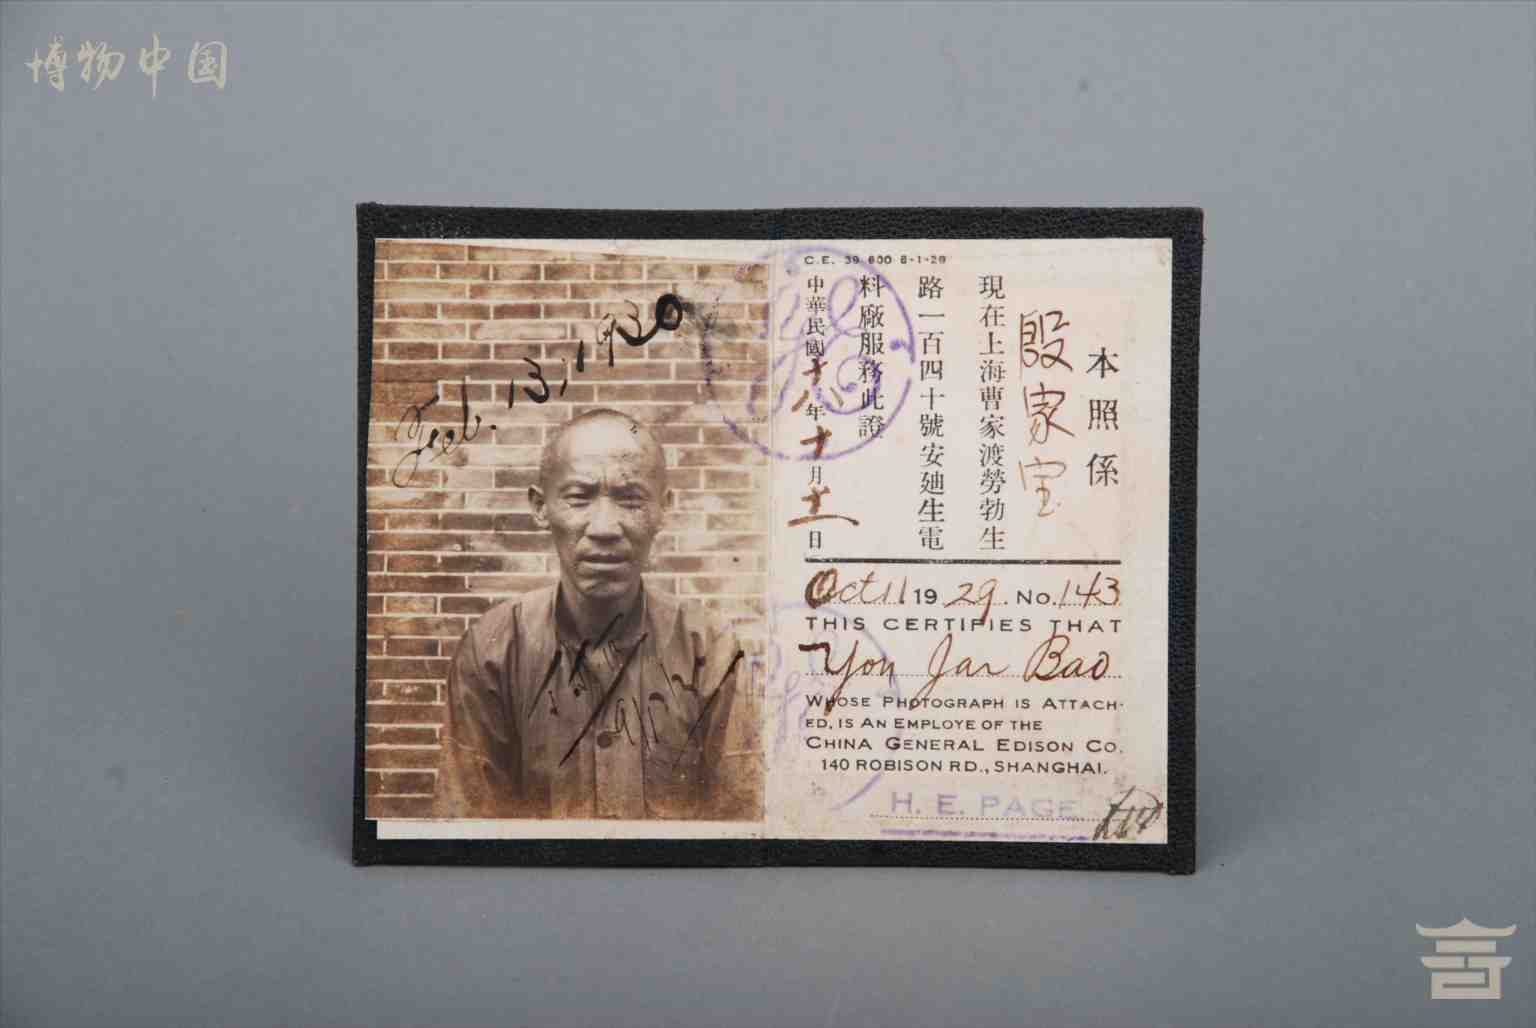 博物中国
Feb. 13, 1930
C.E. 39 600 8-1-29
本照係
殷家宝
現在上海曹家渡勞勃生
路一百四十號安廸生電
料廠服務此證
中華民國十八年十月十一日
Oct 11 1929. No. 143
THIS CERTIFIES THAT
Yon Jar Bao
WHOSE PHOTOGRAPH IS ATTACH-
ED, IS AN EMPLOYE OF THE
CHINA GENERAL EDISON CO.
140 ROBISON RD., SHANGHAI.
H. E. PAGE